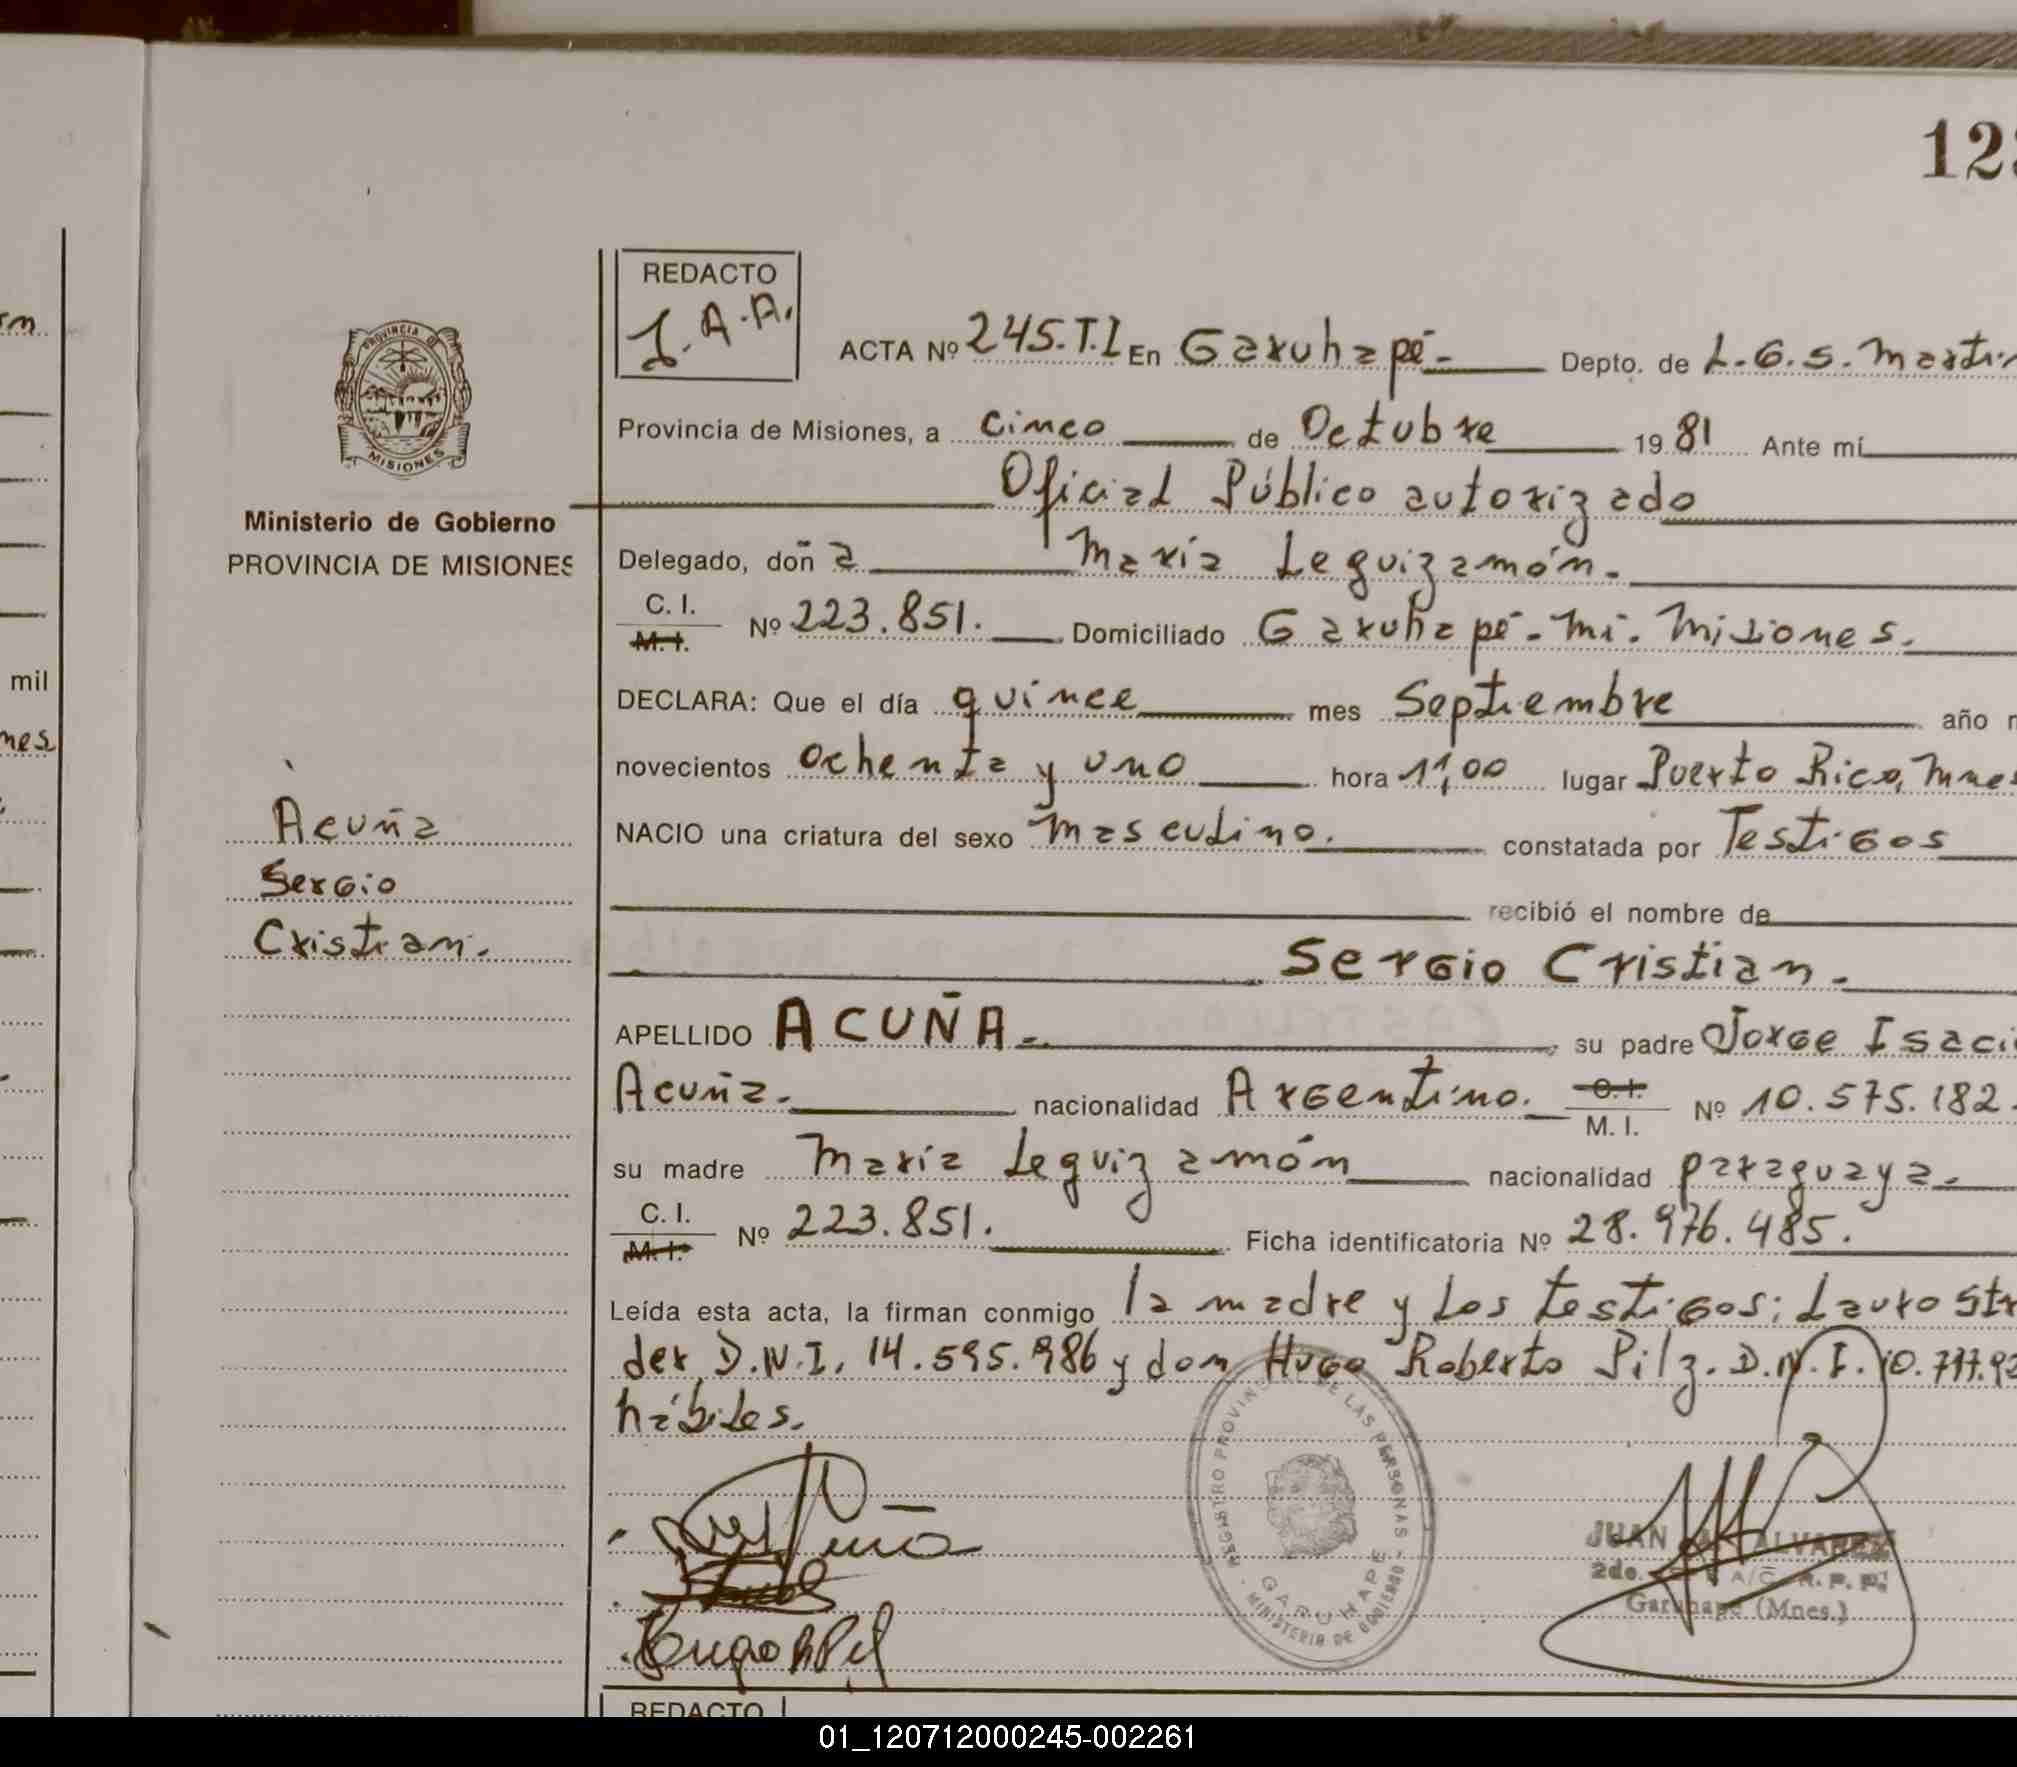 123
REDACTO
J.A.A.
ACTA Nº 245.T.I En Garuhapé- Depto. de L.G.S. Martin
Provincia de Misiones, a cinco de Octubre 19 81 Ante mí
Oficial Público autorizado
PROVINCIA DE
MISIONES
Ministerio de Gobierno
PROVINCIA DE MISIONES
Delegado, doña María Leguizamón.
C. I.
M. I.
Nº 223.851. Domiciliado Garuhapé-Mi. Misiones.
DECLARA: Que el día quince mes Septiembre año
novecientos ochenta y uno hora 11,00 lugar Puerto Rico, Mnes
NACIO una criatura del sexo masculino. constatada por Testigos
recibió el nombre de
Sergio Cristian.
Acuña
Sergio
Cristian.
APELLIDO ACUÑA.- su padre Jorge Isaci
Acuña. nacionalidad Argentino. C. I. M. I. Nº 10.575.182.
su madre María Leguizamón nacionalidad paraguaya.
C. I.
M. I.
Nº 223.851. Ficha identificatoria Nº 28.976.485.
Leída esta acta, la firman conmigo la madre y los testigos; Lauro Str
der D.N.I. 14.595.986 y don Hugo Roberto Pilz. D.N.I. 10.777.92
hábiles.
REGISTRO PROVINCIAL DE LAS PERSONAS
GARUHAPE
MINISTERIO DE GOBIERNO
JUAN ALVAREZ
2do. A/C R. P. P.
Garuhapé (Mnes.)
REDACTO
mil
mes
01_120712000245-002261